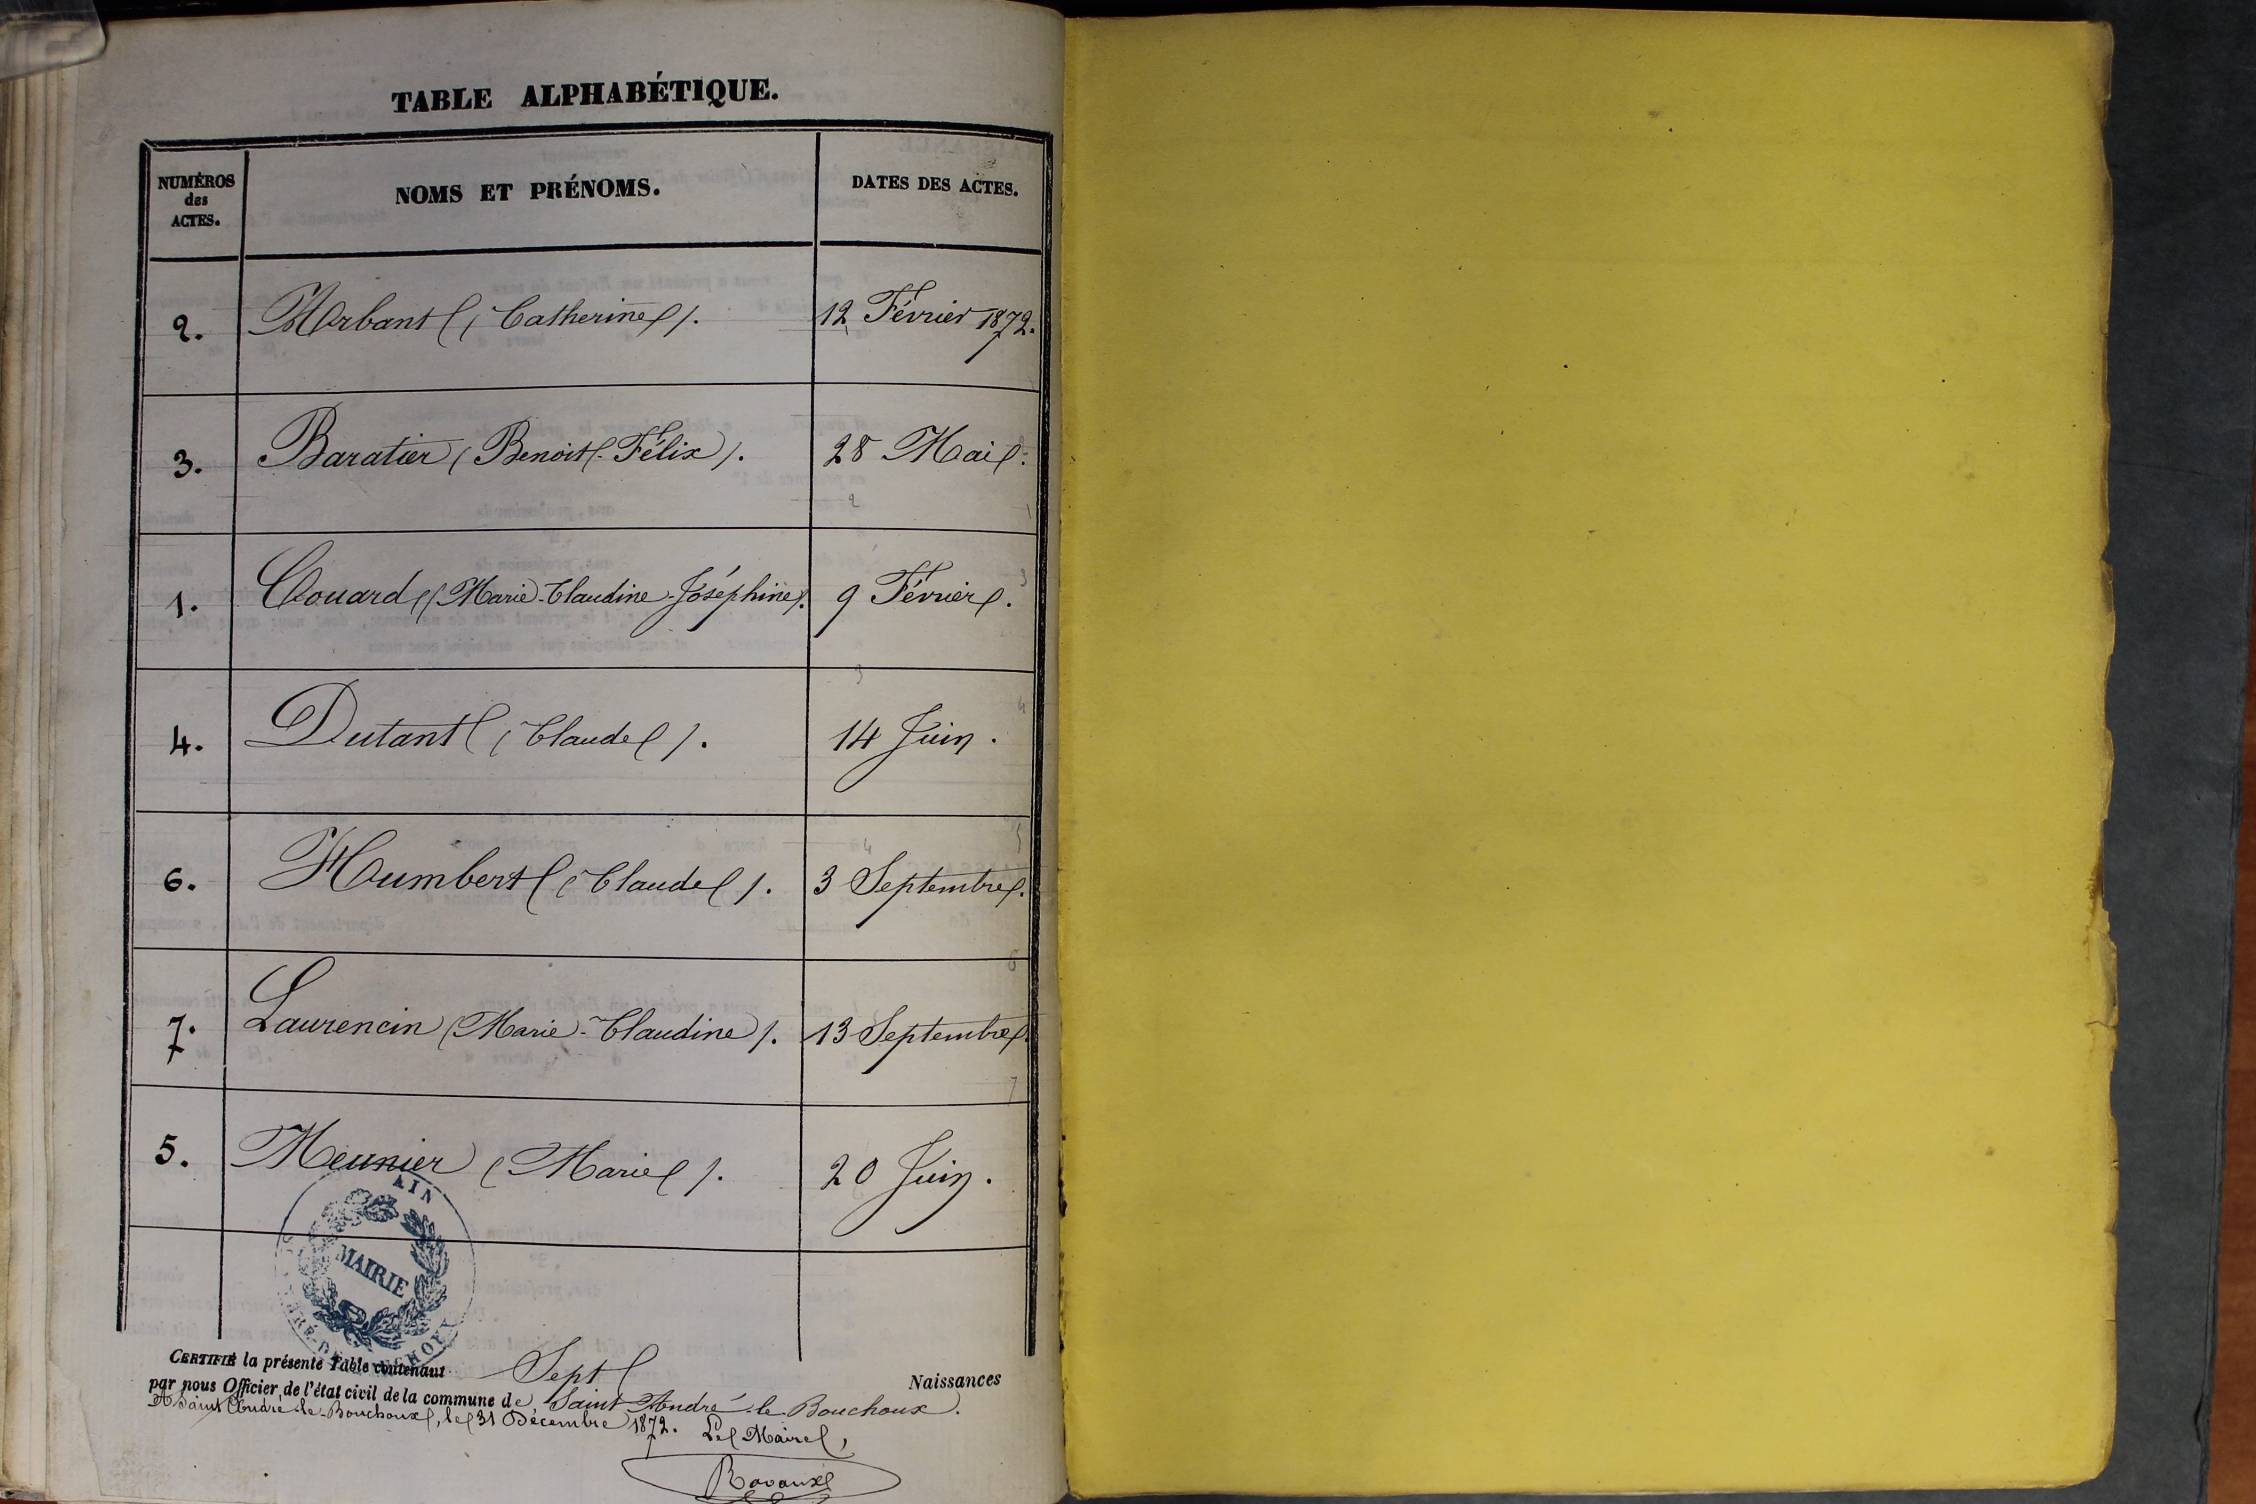 TABLE ALPHABÉTIQUE.
NUMÉROS des ACTES.
NOMS ET PRÉNOMS.
DATES DES ACTES.
2. Arbant (Catherine). 12 Février 1872.
3. Baratier (Benoit-Félix). 28 Mai.
1. Couard (Marie-Claudine-Joséphine). 9 Février.
4. Dutant (Claude). 14 Juin.
6. Humbert (Claude). 3 Septembre.
7. Laurencin (Marie-Claudine). 13 Septembre.
5. Meunier (Marie). 20 Juin.
AIN
MAIRIE
CERTIFIÉ la présente Table contenant Sept Naissances
par nous Officier de l'état civil de la commune de Saint André-le-Bouchoux.
A Saint André-le-Bouchoux, le 31 Décembre 1872. Le Maire,